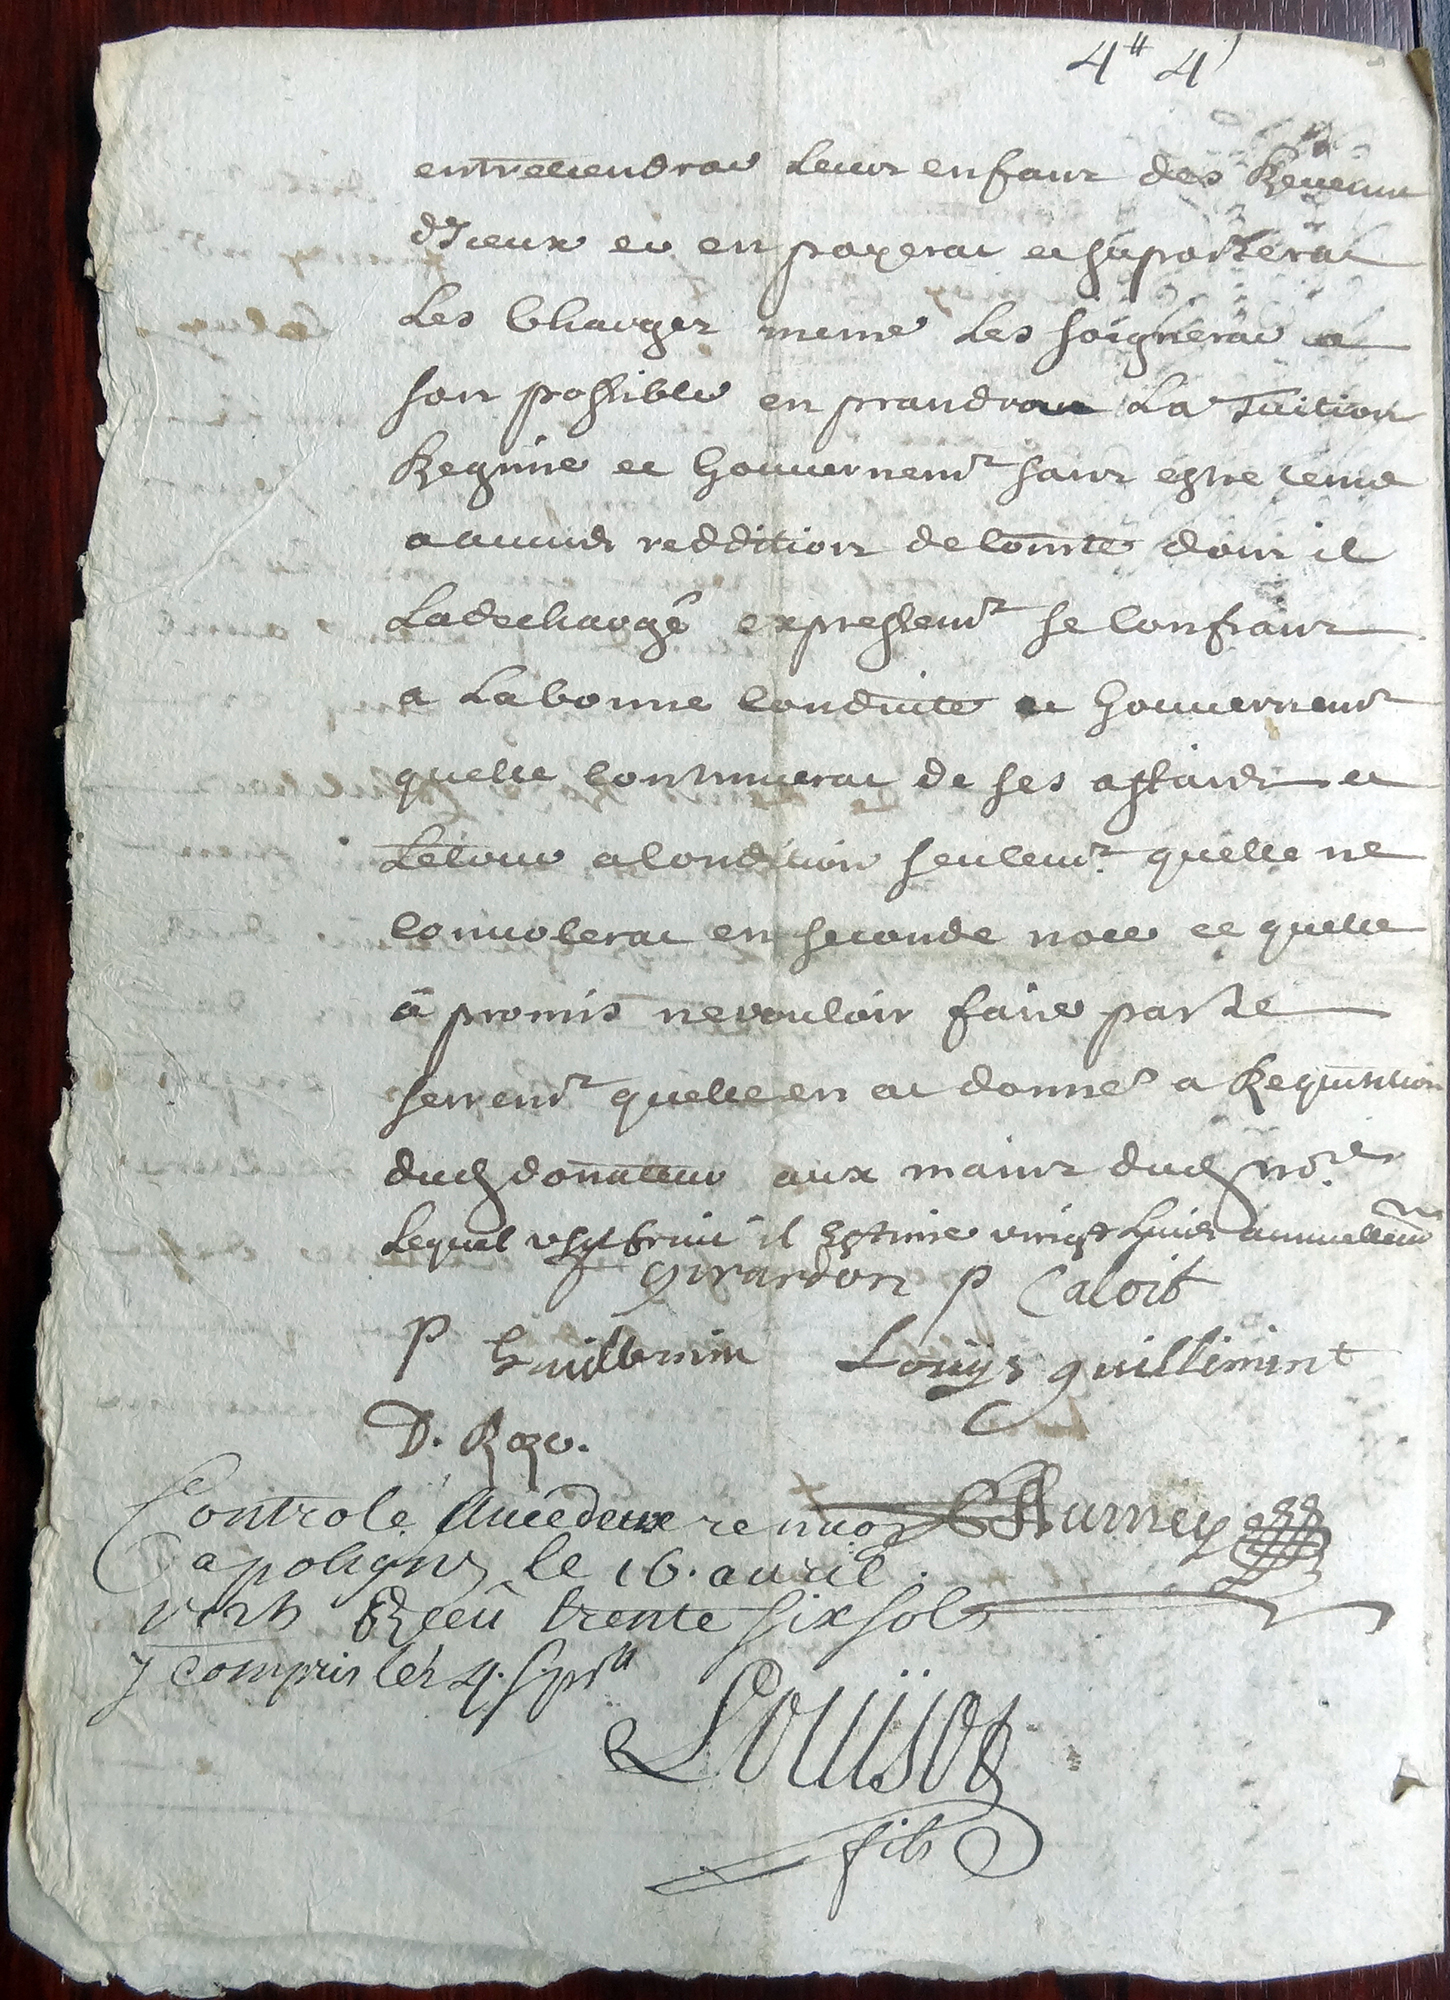 4ᵗᵗ 4ˢ
entretiendrat Leur enfant des Revenu
d'Iceux et en payerat et suporterat
Les Charges meme Les soignerat a
son possible en prandrat La Tuition
Regime et Gouvernemt sans estre tenue
a aucune reddition de Comte dont il
La decharge expressemt se Confiant
a La bonne Conduite et Gouvernemt
quelle Continuerat de ses affaires et
Le tout a Condition seulemt quelle ne
Convolerat en seconde noce ce quelle
a promis ne vouloir faire par le
serremt quelle en at donné a Requisition
dud donateur aux mains dud nore
Lequel usufruit il Estime vingt Livres annuellemt
Girardon P Caloit
P Guillemin Louys guillemint
D. Roze.
Controlé avec deux renvoy Chumey
a poligny le 16. avril
receu trente six sols
y compris les 4. s pr tt
Louisot
fils